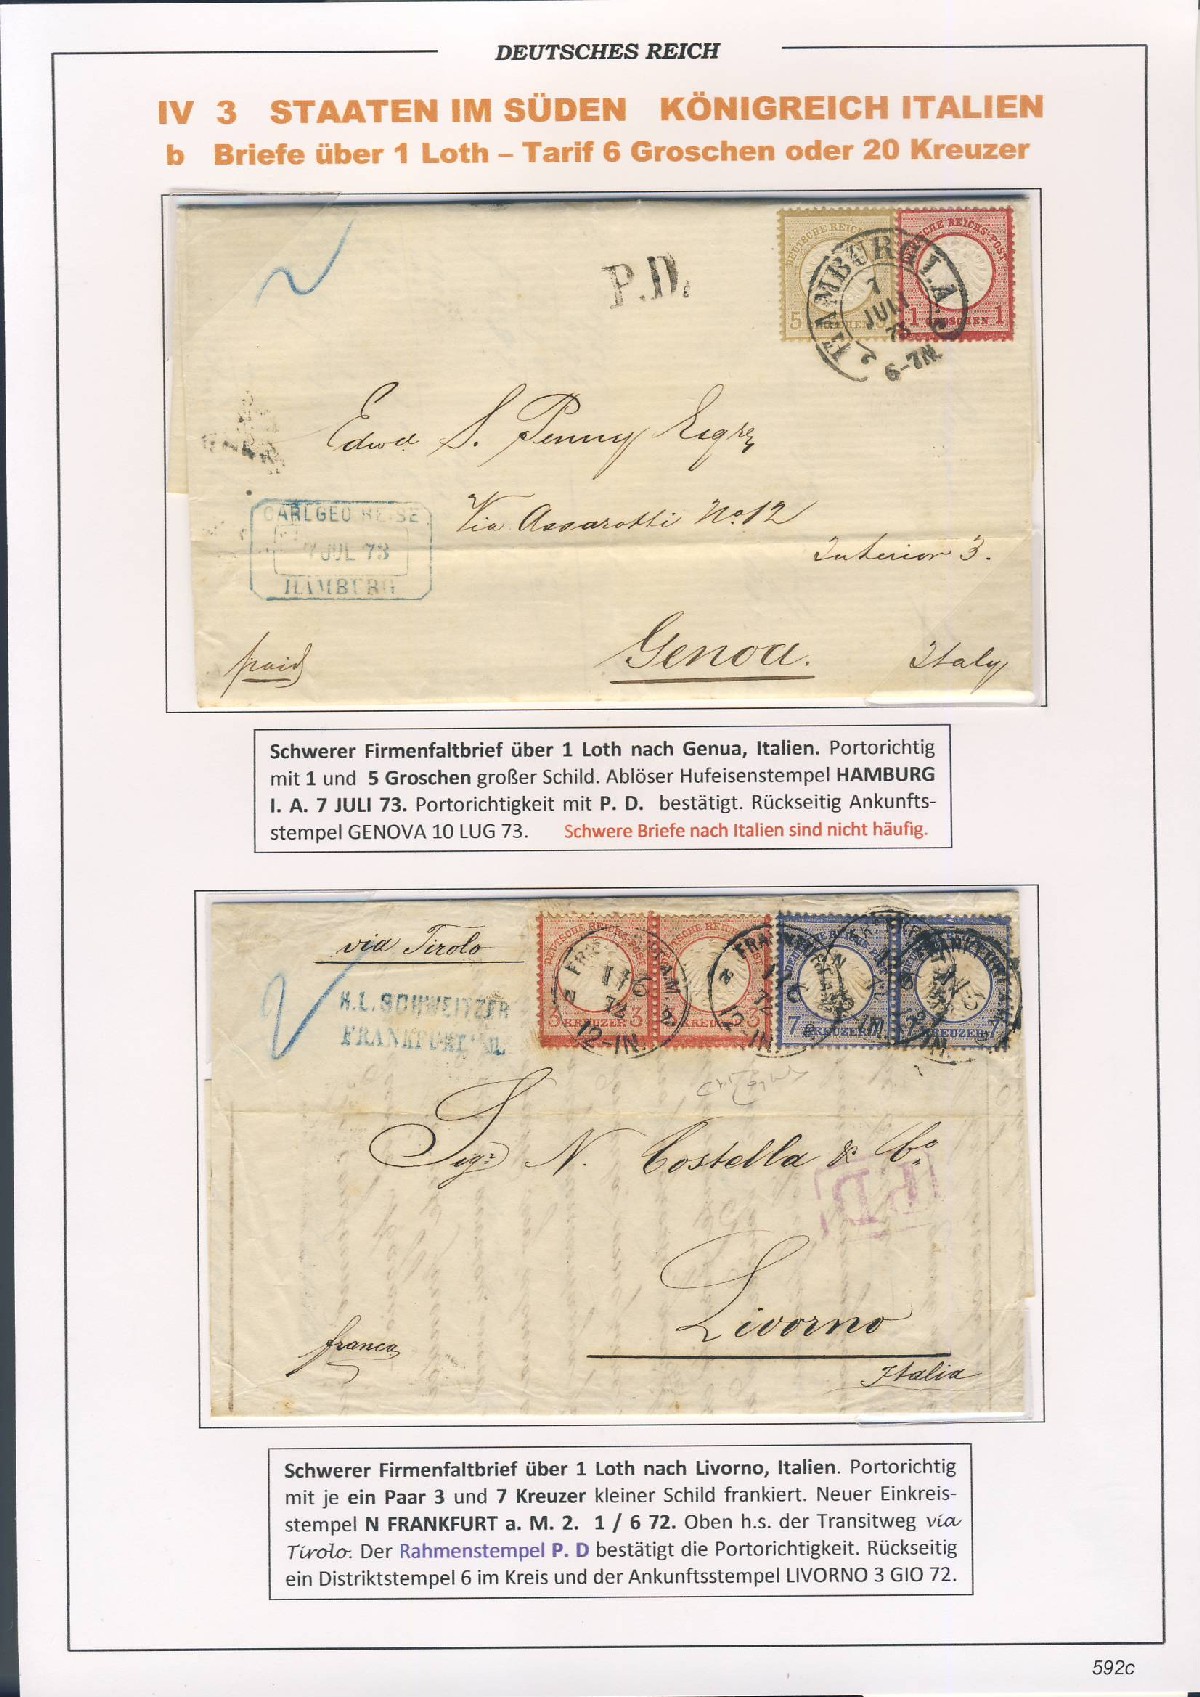 DEUTSCHES REICH
IV 3 STAATEN IM SÜDEN KÖNIGREICH ITALIEN
b Briefe über 1 Loth – Tarif 6 Groschen oder 20 Kreuzer
P.D.
5
1 GROSCHEN 1
HAMBURG I.A.
7
JULI
73
6-7N
Edwd. S. Penny Esqre
Via Assarotti No. 12
Interior 3.
CARL GEO HEISE
7 JUL 73
HAMBURG
paid
Genoa.
Italy
Schwerer Firmenfaltbrief über 1 Loth nach Genua, Italien. Portorichtig
mit 1 und 5 Groschen großer Schild. Ablöser Hufeisenstempel HAMBURG
I. A. 7 JULI 73. Portorichtigkeit mit P. D. bestätigt. Rückseitig Ankunfts-
stempel GENOVA 10 LUG 73. Schwere Briefe nach Italien sind nicht häufig.
via Tirolo
H.L. SCHWEITZER
FRANKFURT a/M.
3 KREUZER 3
7 KREUZER 7
1/6
72
12-1N.
Sigr N. Costella & Co.
PD
Livorno
franca
Italia
Schwerer Firmenfaltbrief über 1 Loth nach Livorno, Italien. Portorichtig
mit je ein Paar 3 und 7 Kreuzer kleiner Schild frankiert. Neuer Einkreis-
stempel N FRANKFURT a. M. 2. 1 / 6 72. Oben h.s. der Transitweg via
Tirolo. Der Rahmenstempel P. D bestätigt die Portorichtigkeit. Rückseitig
ein Distriktstempel 6 im Kreis und der Ankunftsstempel LIVORNO 3 GIO 72.
592c